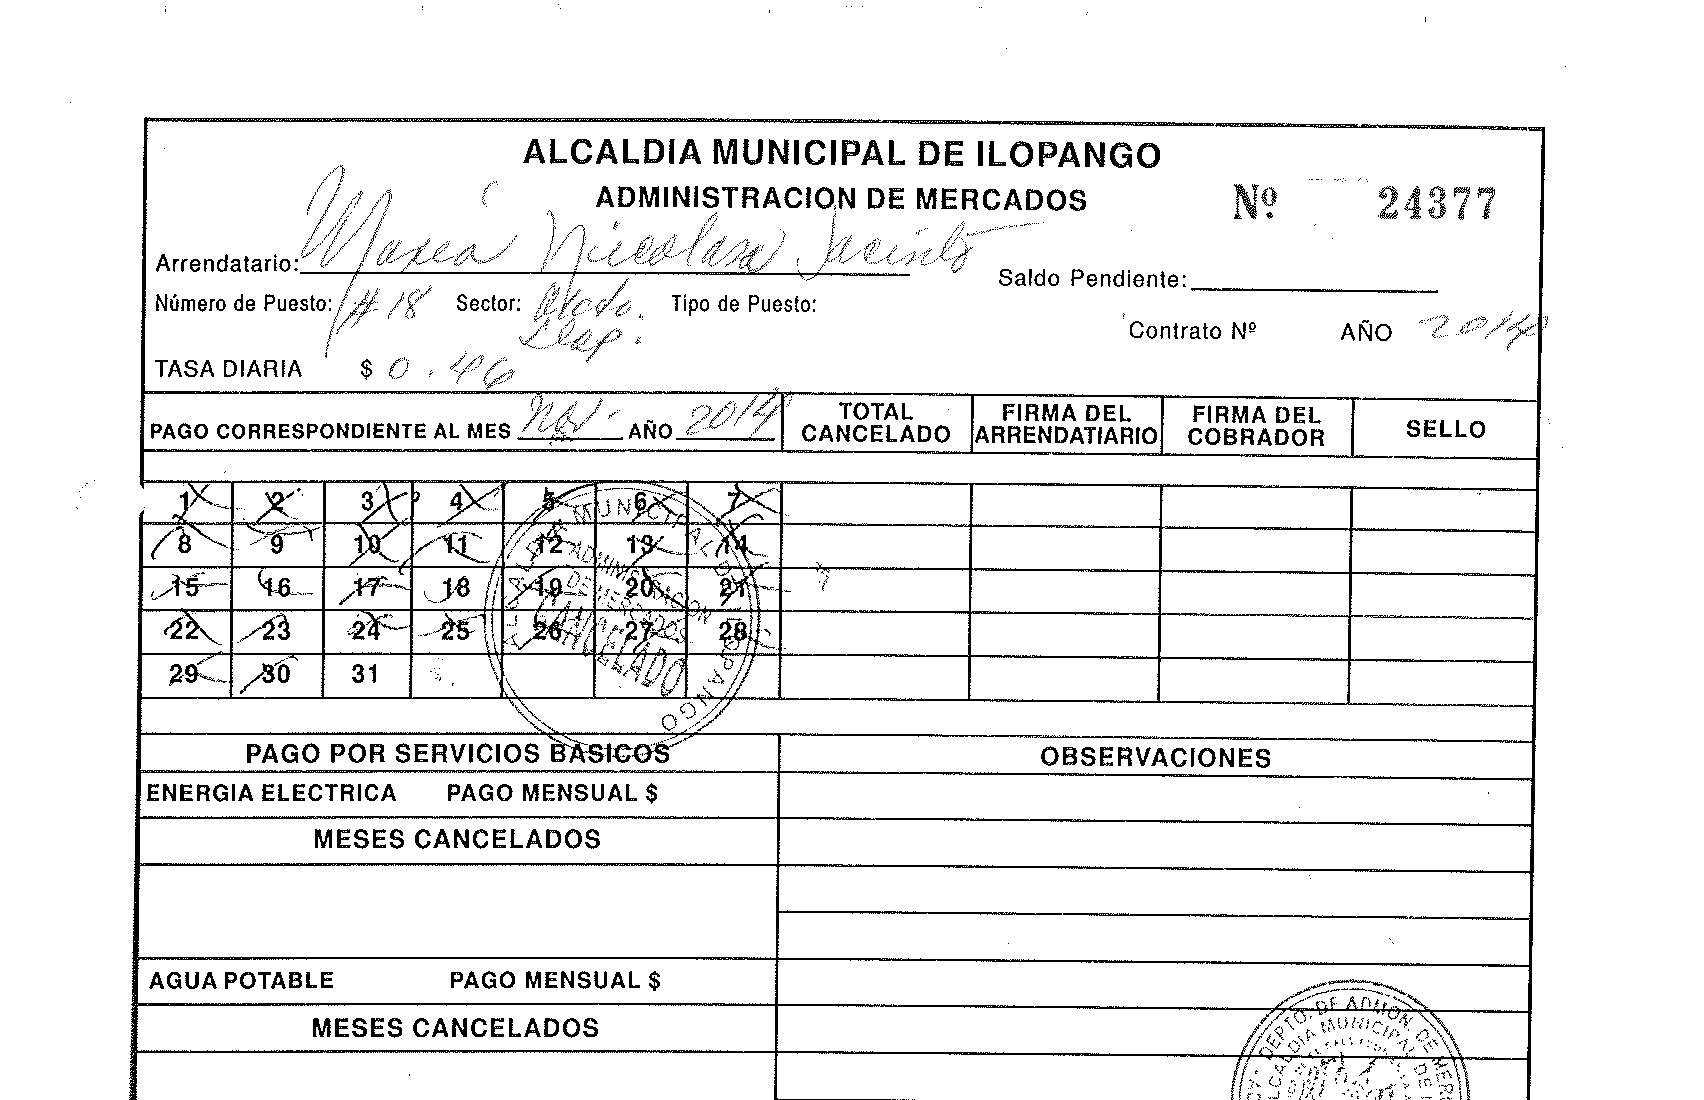 ALCALDIA MUNICIPAL DE ILOPANGO
ADMINISTRACION DE MERCADOS
Nº 24377
Arrendatario: Maria Nicolasa Jacinto
Saldo Pendiente:
Número de Puesto: #18 Sector: Mcdo. Ilop. Tipo de Puesto:
Contrato Nº AÑO 2014
TASA DIARIA $ 0.46
PAGO CORRESPONDIENTE AL MES Nov. AÑO 2014
TOTAL CANCELADO
FIRMA DEL ARRENDATIARIO
FIRMA DEL COBRADOR
SELLO
1 2 3 4 5 6 7
8 9 10 11 12 13 14
15 16 17 18 19 20 21
22 23 24 25 26 27 28
29 30 31
ALCALDIA MUNICIPAL DE ILOPANGO
ADMINISTRACION
DE MERCADOS
CANCELADO
PAGO POR SERVICIOS BASICOS
OBSERVACIONES
ENERGIA ELECTRICA PAGO MENSUAL $
MESES CANCELADOS
AGUA POTABLE PAGO MENSUAL $
MESES CANCELADOS
DEPTO. DE ADMON. DE
ALCALDIA MUNICIPAL DE